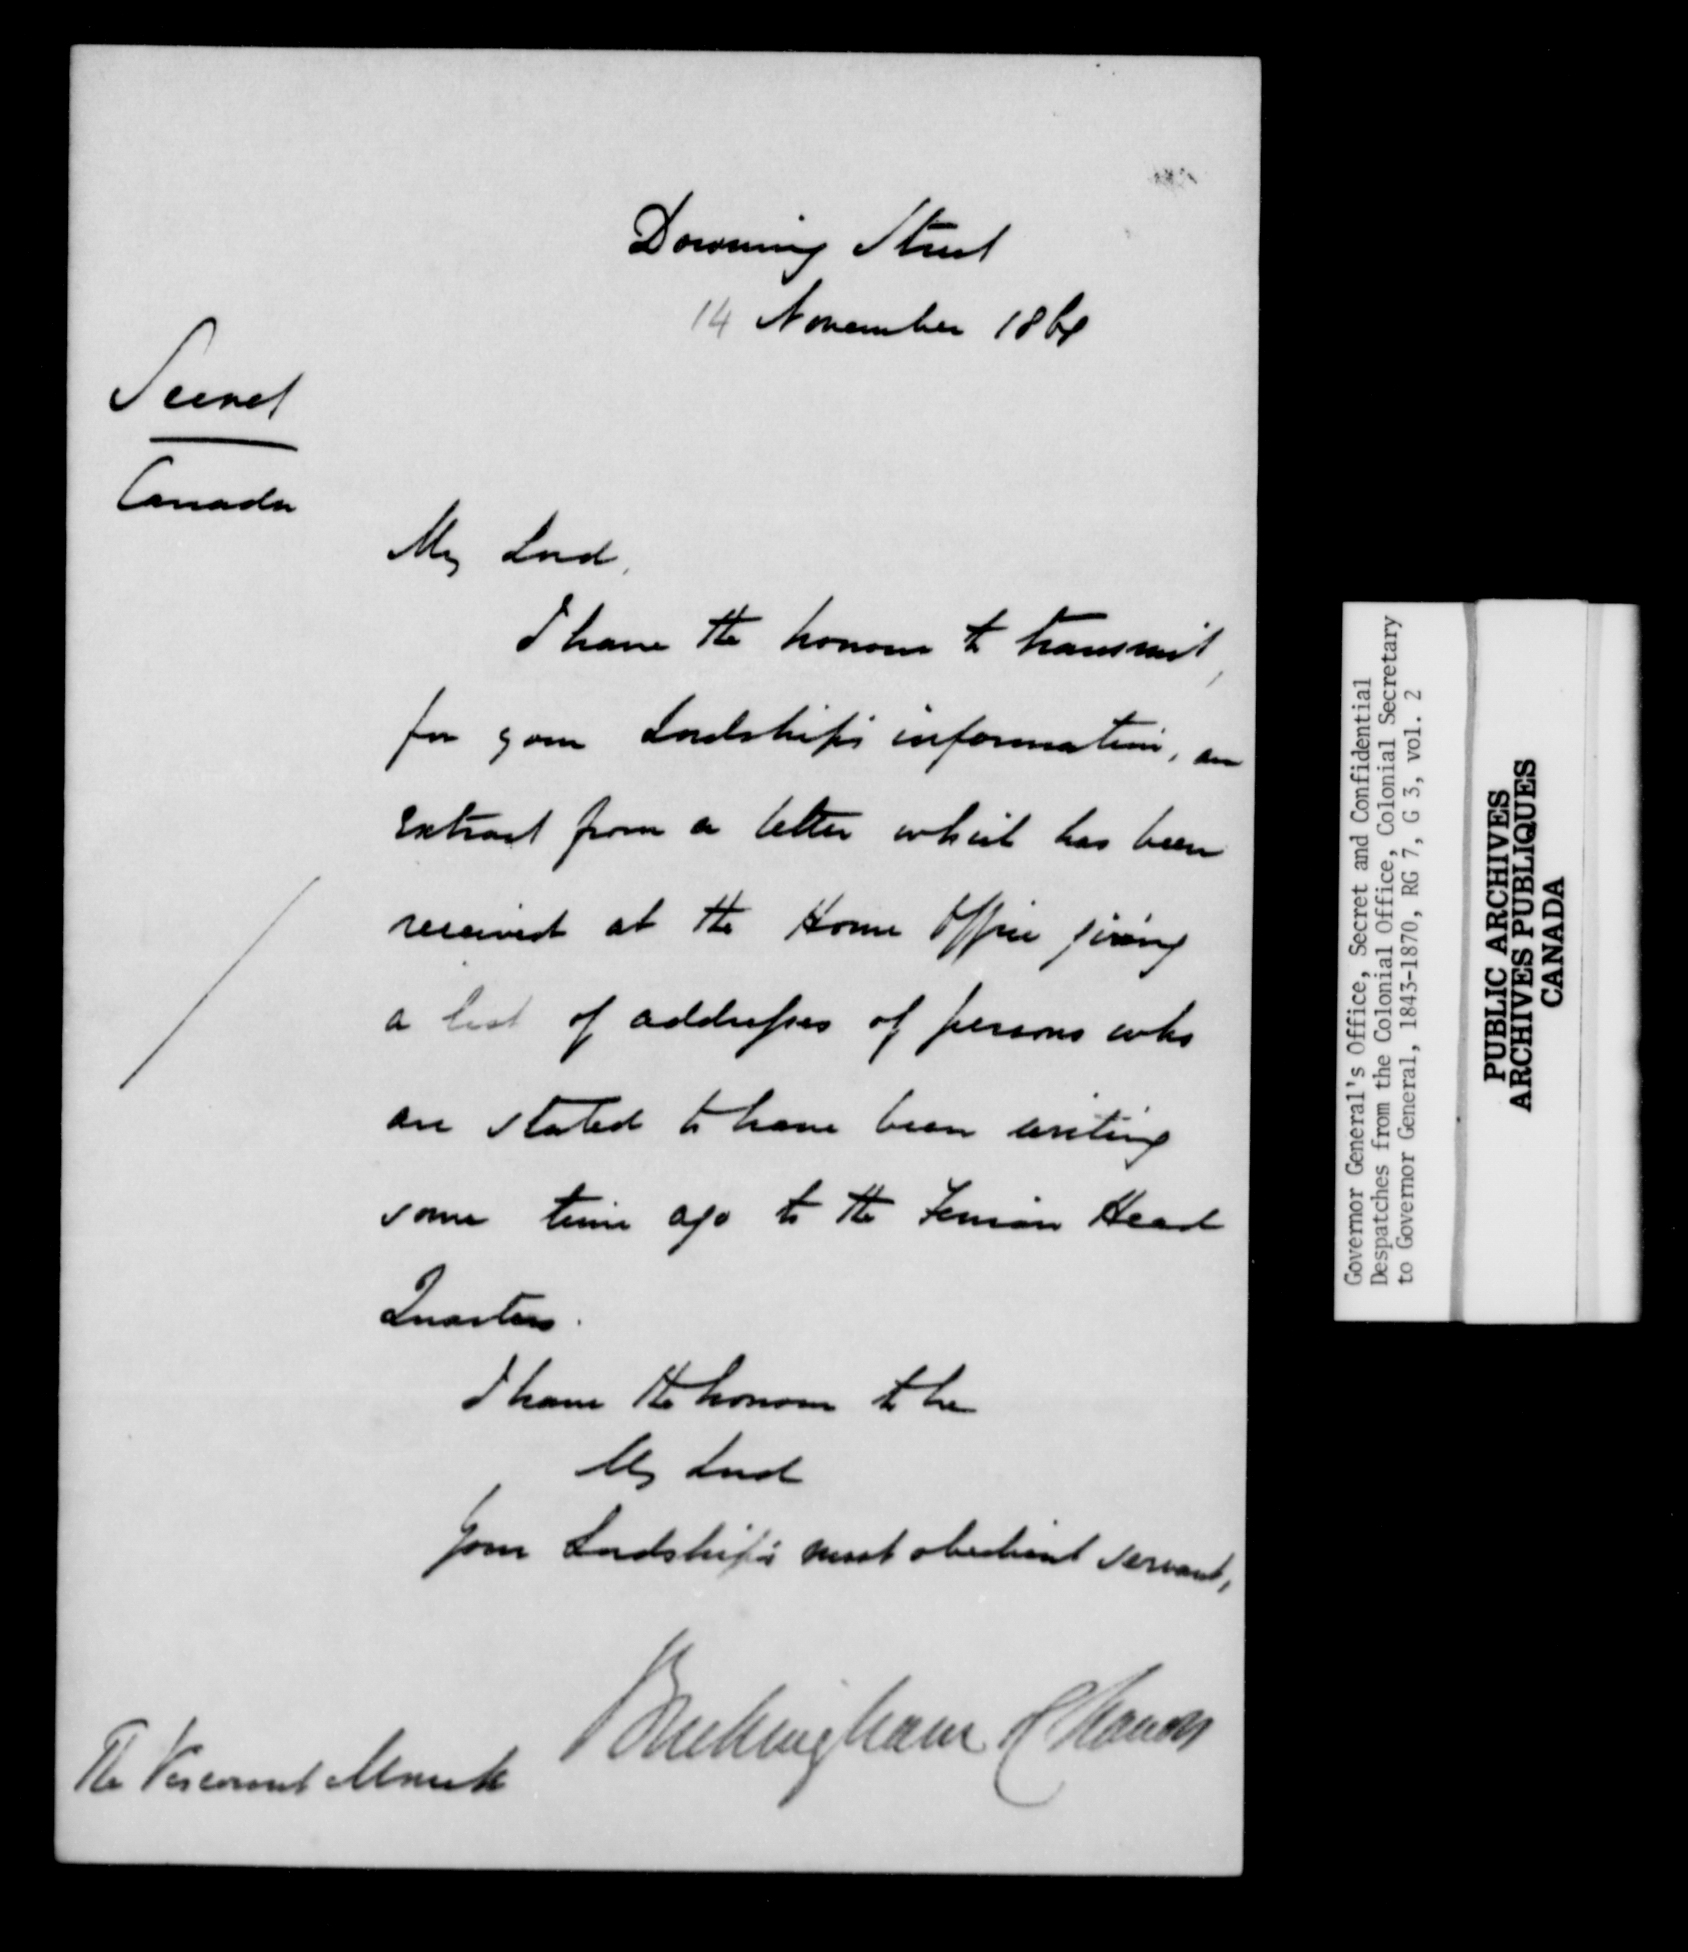 Downing Street
14 November 1867
Secret
Canada
My Lord,
I have the honour to transmit,
for your Lordship's information, an
extract from a letter which has been
received at the Home Office giving
a list of addresses of persons who
are stated to have been writing
some time ago to the Fenian Head
Quarters.
I have the honour to be
My Lord
Your Lordship's most obedient servant,
Buckingham & Chandos
The Viscount Monck
Governor General's Office, Secret and Confidential
Despatches from the Colonial Office, Colonial Secretary
to Governor General, 1843-1870, RG 7, G 3, vol. 2
PUBLIC ARCHIVES
ARCHIVES PUBLIQUES
CANADA